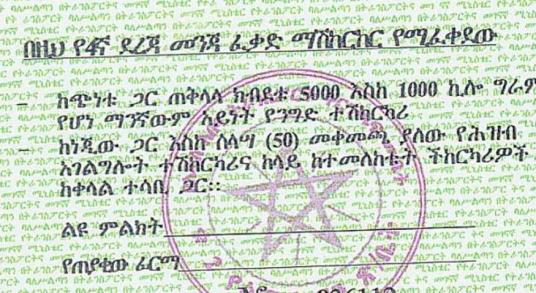 በዚህ የ4ኛ ደረጃ መንጃ ፈቃድ ማሽከርከር የሚፈቀደው
– ከጭነቱ ጋር ጠቅላላ ክብደቱ 5000 እስከ 1000 ኪሎ ግራም
የሆነ ማንኛውም አይነት የንግድ ተሽከርካሪ
– ከነጂው ጋር እስከ ሰላሣ (50) መቀመጫ ያለው የሕዝብ
አገልግሎት ተሽከርካሪና ከላይ ከተመለከቱት ችከርካሪዎች
ከቀላል ተሳቢ ጋር።
ልዩ ምልክት
የጠያቂው ፊርማ